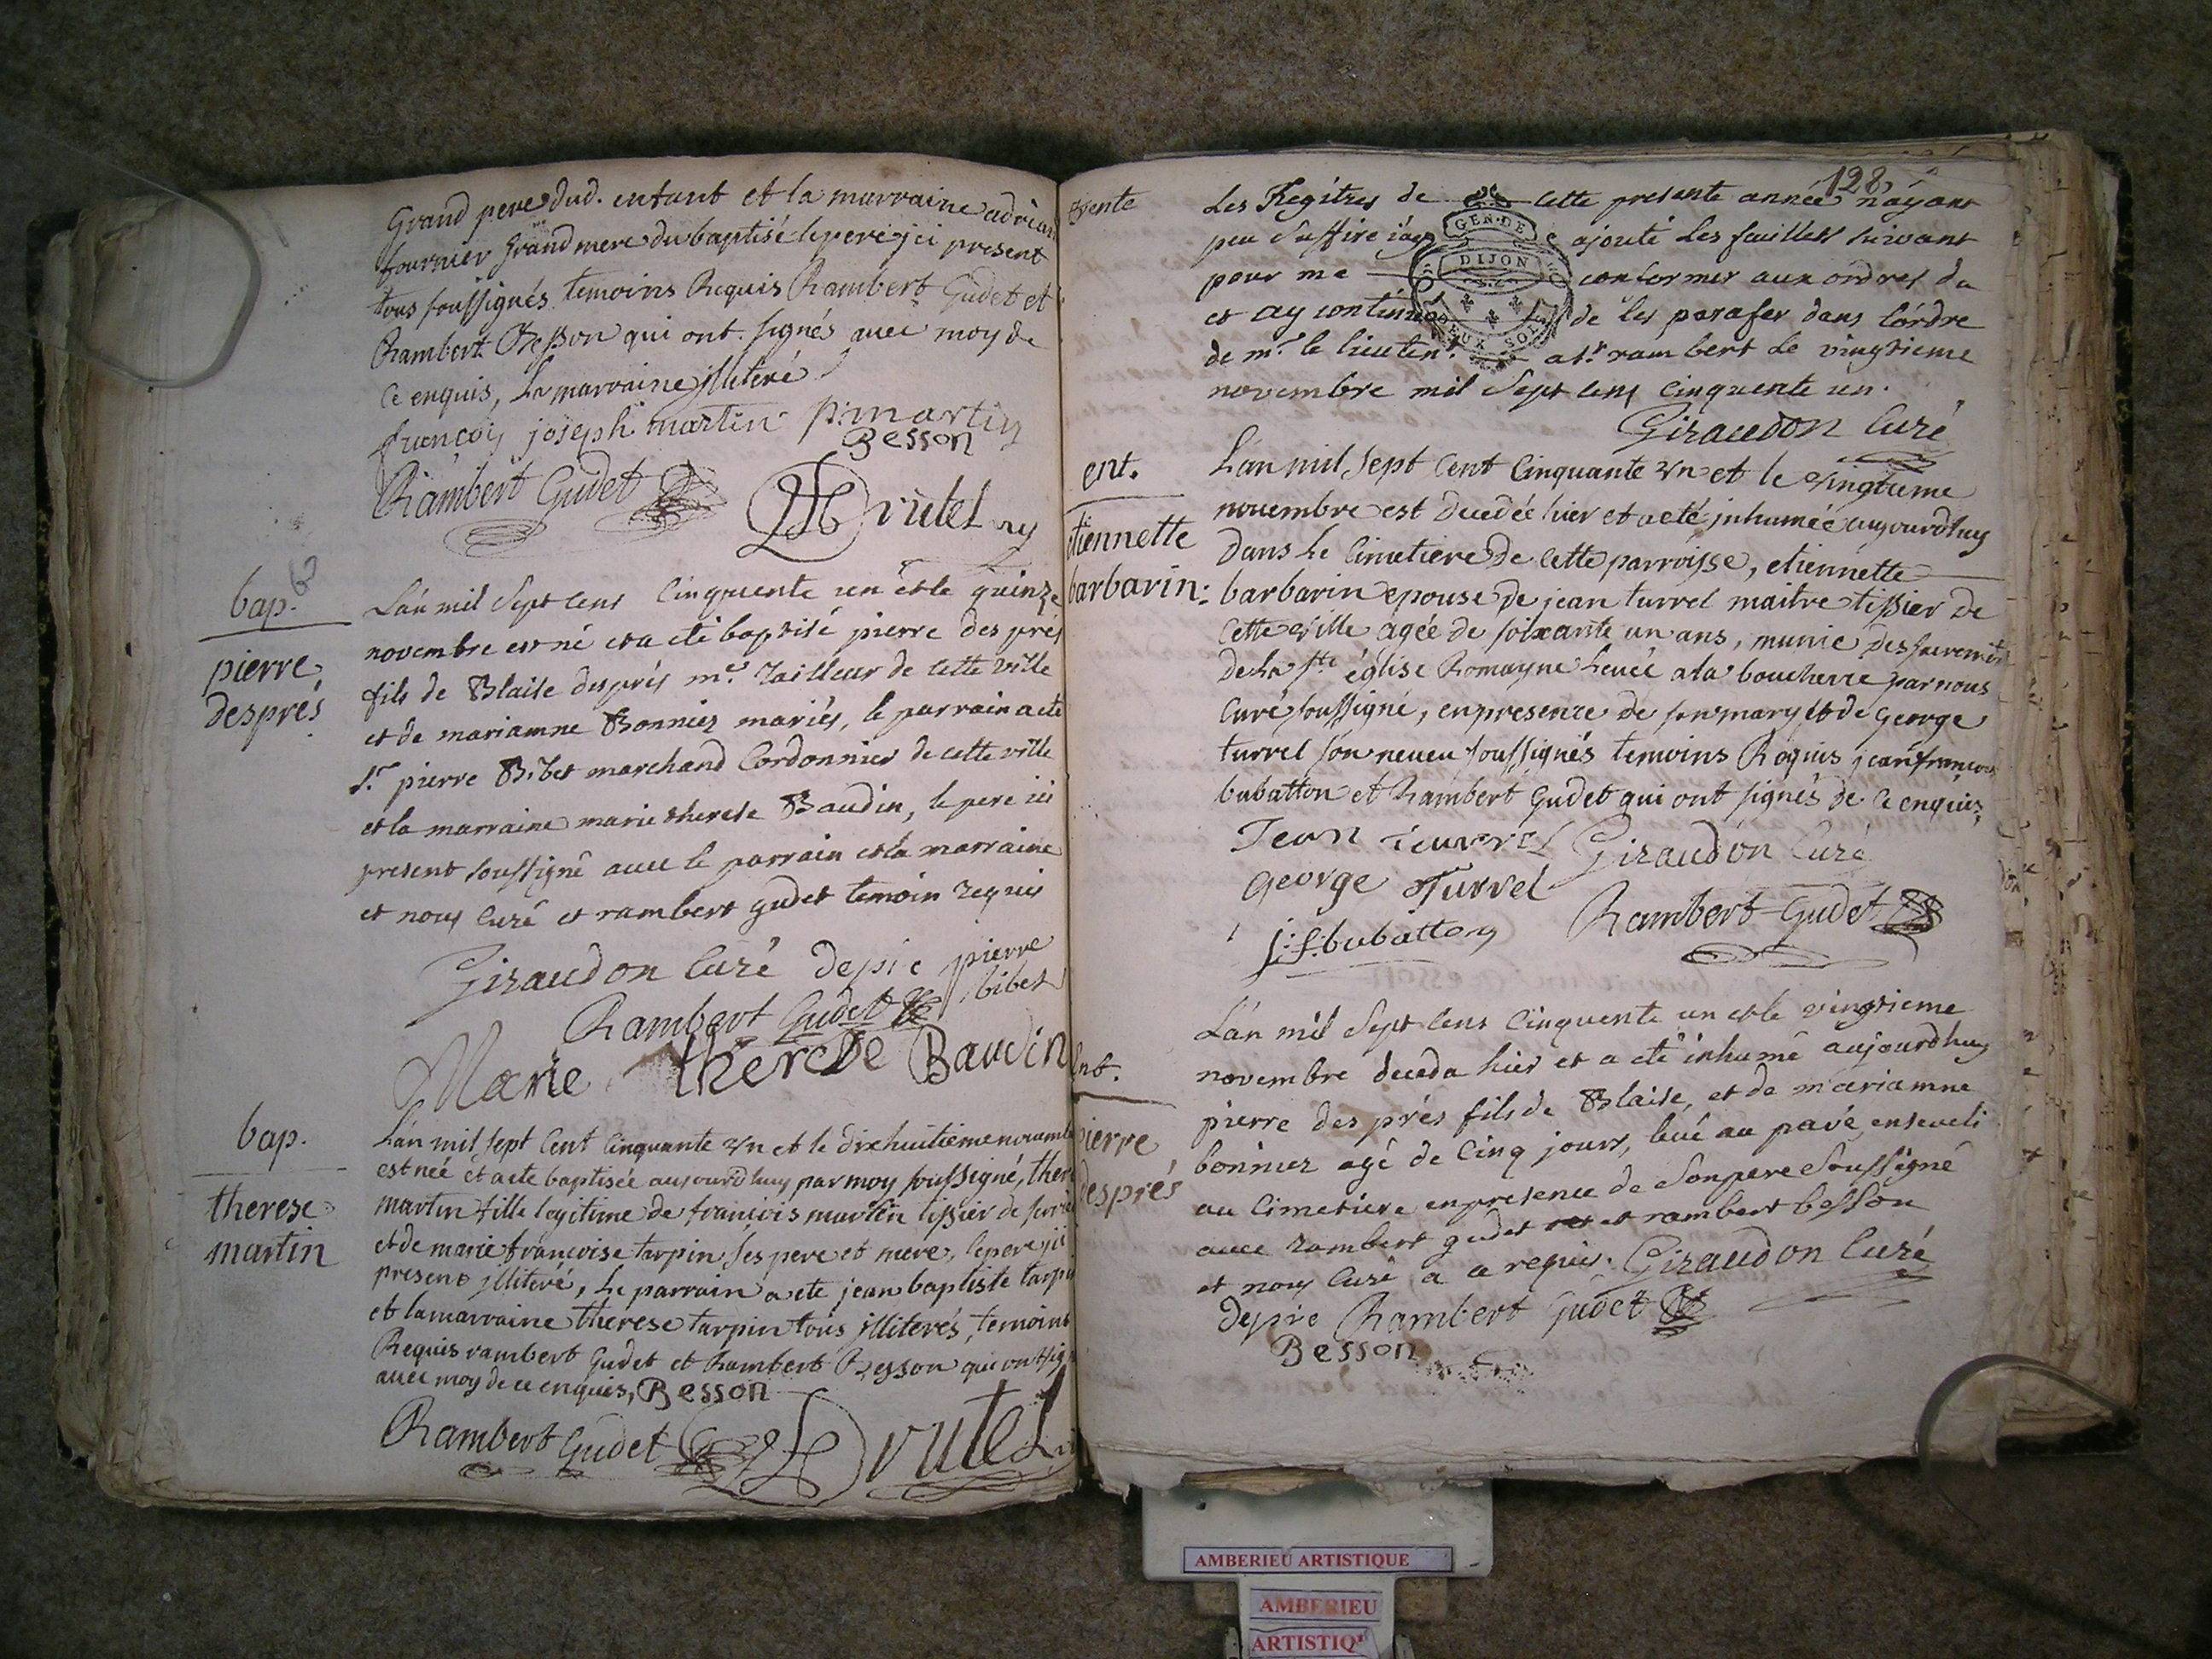 Grand pere dud. enfant et la marraine adrian
fournier grand mere du baptisé le pere jci present
tous soussignés temoins Requis Rambert Gudet et
Rambert Besson qui ont signés avec moy de
Ce enquis, La marraine jlliteré
françois joseph martin p: martin
Besson
Rambert Gudet
Drutel
bap.
pierre
desprès
L'an mil Sept cens Cinquente un et le quinze
novembre est né et a eté baptisé pierre des prés
fils de Blaise després me. Tailleur de cette ville
et de mariamne Bonnier mariés, le parrain a eté
Sr. pierre Bibet marchand Cordonnier de cette ville
et la marraine marie therese Baudin, le pere ici
present soussigné avec le parrain et la marraine
et nous Curé et rambert gudet temoin requis
Giraudon Curé depie pierre
bibet
Rambert Gudet
Marie therese Baudin
bap.
therese
martin
L'an mil sept Cent Cinquante vn et le dixhuitieme nouemb
est née et a eté baptisée aujourdhuy par moy soussigné, there
martin fille legitime de francois martin tissier de
et de marie francoise tarpin ses pere et mere, le pere jci
present jlliteré, Le parrain a eté jean baptiste tarpin
et la marraine therese tarpin tous jlliterés, temoins
Requis rambert Gudet et Rambert Besson qui ont sig
avec moy de ce enquis, Besson
Rambert Gudet Drutel
128
Les Regîtres de cette presente année n'ayant
peu Suffire ajouté Les feuillets suivant
pour me conformer aux ordres du
et ay continué de les parafer dans l'ordre
de mr. le lieuten. a st. rambert Le vingtieme
novembre mil Sept cens Cinquente un.
GEN. DE
DIJON
DEUX SOLS
Giraudon Curé
ent.
tiennette
barbarin:
L'an mil sept Cent Cinquante vn et le vingtieme
nouembre est decedée hier et a eté jnhumée aujourdhuy
dans le Cimetiere de Cette parroisse, etiennette
barbarin epouse de jean turrel maitre tissier de
Cette ville agée de soixante un ans, munie des sacremts
de La ste église Romayne Leuée a la boucherie par nous
Curé soussigné, en presence de son mary et de George
turrel son neveu soussignés temoins Requis jean francois
bubatton et Rambert Gudet qui ont signés de ce enquis
Jean Turrel Giraudon Curé
George Turrel
Rambert Gudet
j: f: bubatton
Ent.
pierre
després
L'an mil Sept cens Cinquente un et le vingtieme
novembre deceda hier et a eté inhumé aujourdhuy
pierre des prés fils de Blaise, et de mariamne
bonnier agé de Cinq jours, levé au pavé enseveli
au Cimetiere en presence de Son pere Soussigné
avec rambert gudet et rambert besson
et nous Curé a ce requis. Giraudon Curé
depie Rambert Gudet
Besson
AMBERIEU ARTISTIQUE
AMBERIEU
ARTISTIQ